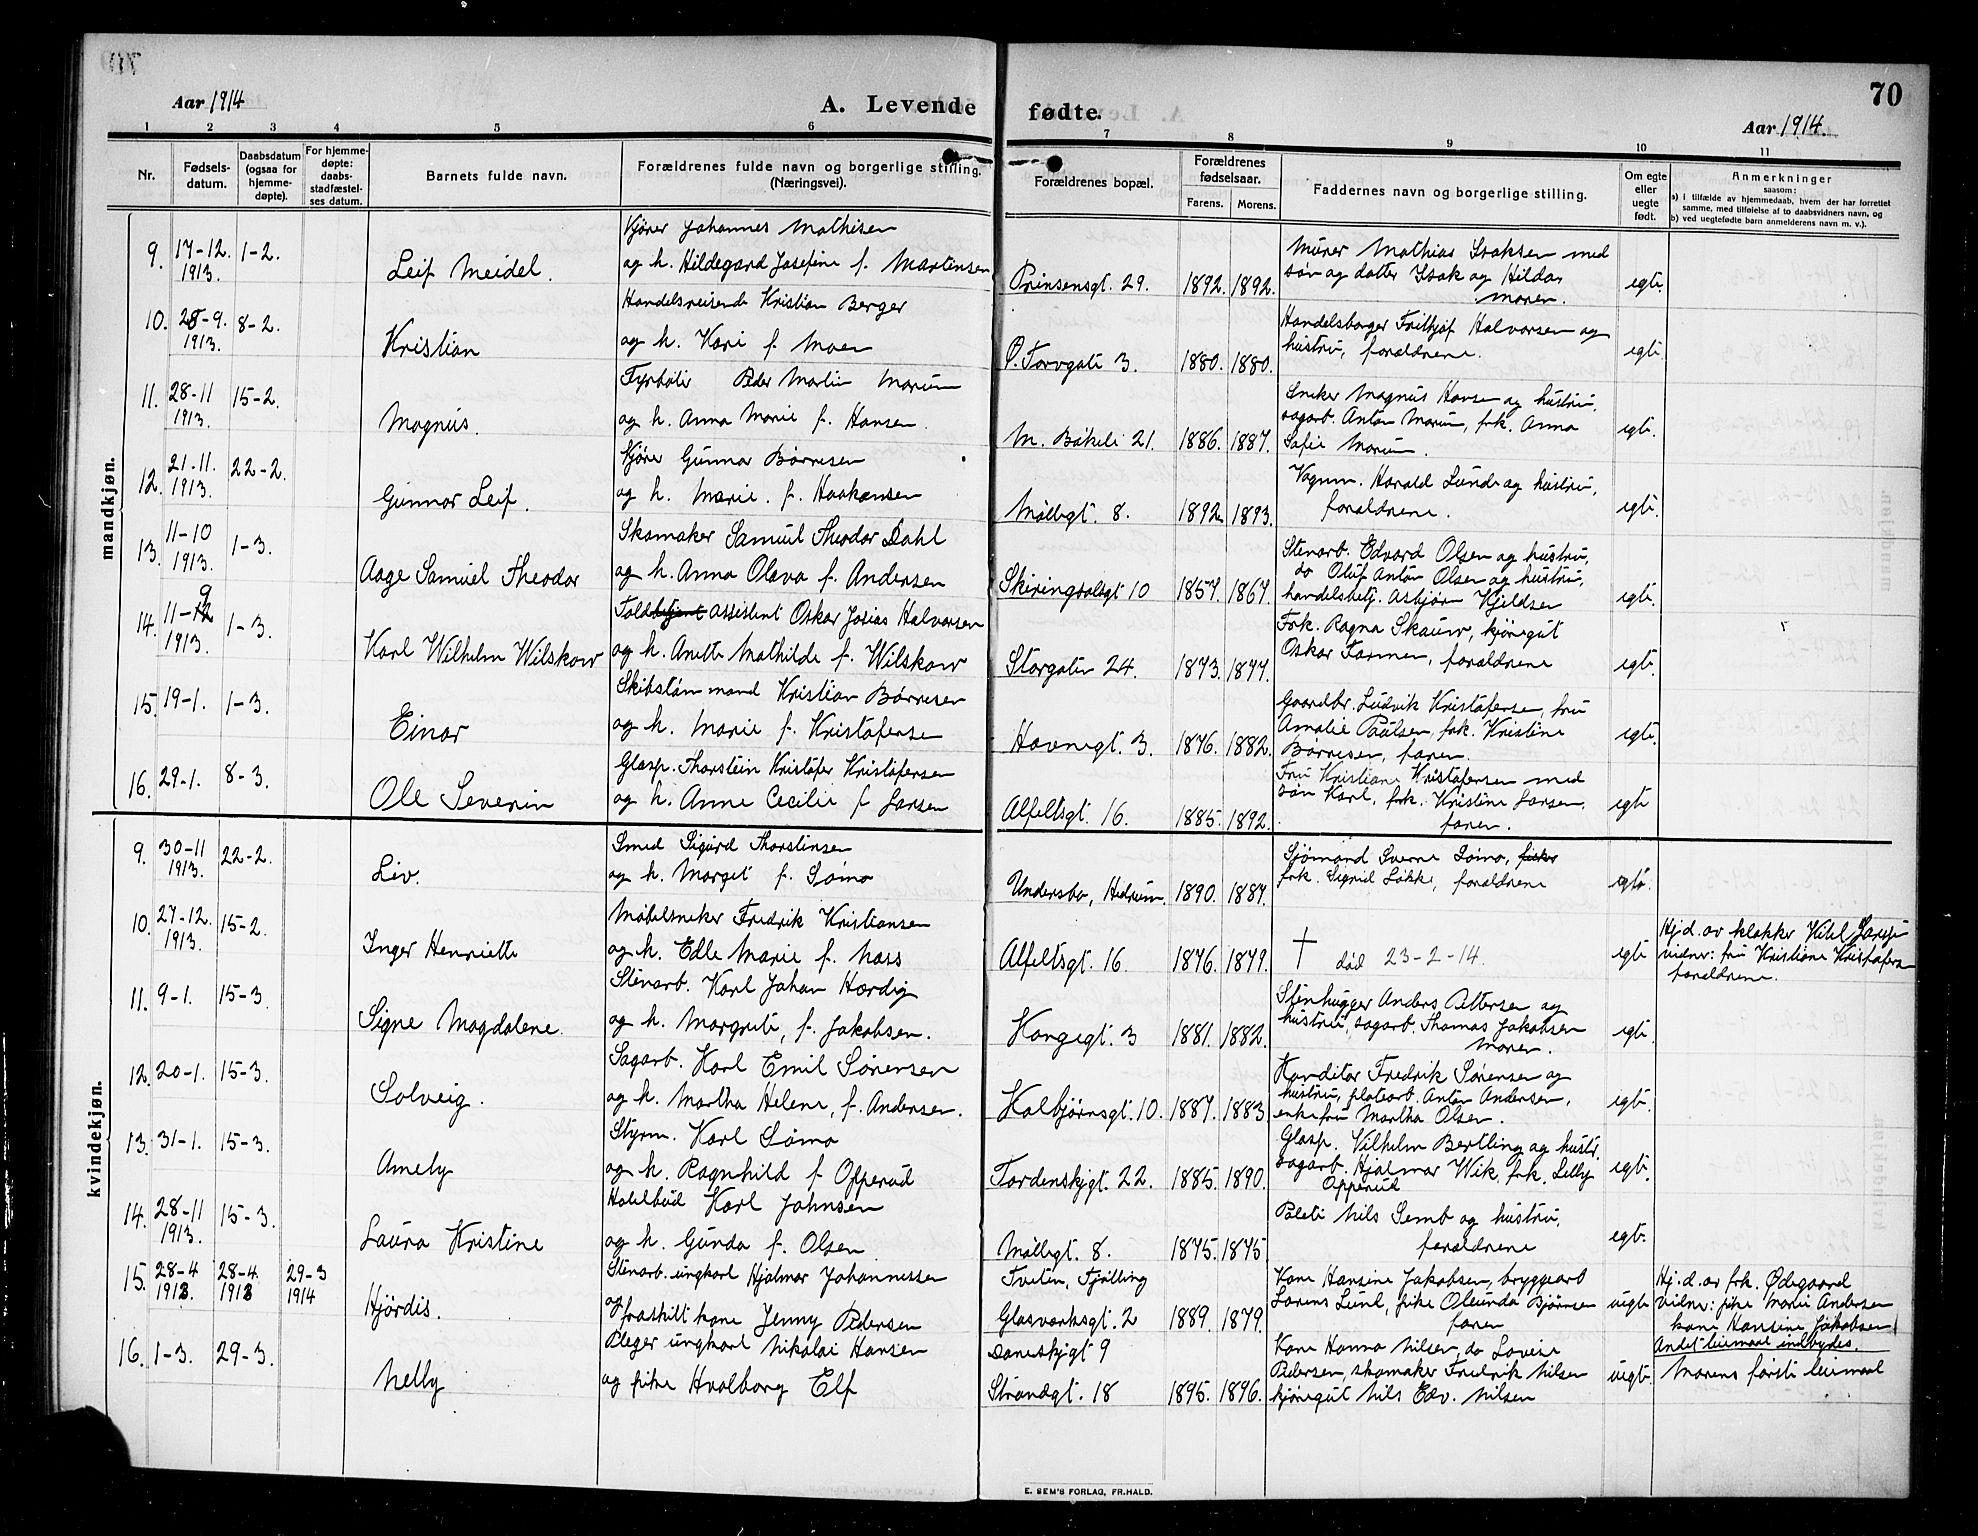 70
Aar 1914
A. Levende fødte.
Aar 1914.
1 2 3 4 5 6 7 8 9 10 11
Nr.
Fødsels-
datum.
Daabsdatum
(ogsaa for
hjemme-
døpte).
For hjemme-
døpte:
daabs-
stadfæstel-
ses datum.
Barnets fulde navn.
Forældrenes fulde navn og borgerlige stilling.
(Næringsvei).
Forældrenes bopæl.
Forældrenes
fødselsaar.
Farens. Morens.
Faddernes navn og borgerlige stilling.
Om egte
eller
uegte
født.
Anmerkninger
saasom:
a) i tilfælde av hjemmedaab, hvem der har forrettet
samme, med tilføielse af to daabsvidners navn, og
b) ved uegtefødte barn anmelderens navn m. v.).
mandkjøn.
9. 17-12. 1913. 1-2. Leif Meidel.
Kjører Johannes Mathisen
og h. Hildegard Josefine f. Martinsen
Prinsensgt. 29. 1892. 1892.
Murer Mathias Isaksen med
søn og datter Isak og Hilda,
moren.
egte.
10. 28-9. 1913. 8-2. Kristian
Handelsreisende Kristian Berger
og h. Kari f. Moen
Ø. Torvgate 3. 1880. 1880.
Handelsborger Frithjof Halvorsen og
hustru, forældrene.
egte.
11. 28-11 1913. 15-2. Magnus.
Fyrbøter Peder Martin Marum
og h. Anna Marie f. Hansen.
M. Bøkeli 21. 1886. 1887.
Sneker Magnus Hansen og hustru,
sagarb. Anton Marum, frk. Anna
Sofie Marum.
egte.
12. 21-11. 1913. 22-2. Gunnar Leif.
Kjører Gunnar Børresen
og h. Marie. f. Haakonsen
Møllegt. 8. 1892. 1893.
Vognm. Harald Lunde og hustru,
forældrene.
egte.
13. 11-10 1913. 1-3. Aage Samuel Theodor
Skomaker Samuel Theodor Dahl
og h. Anna Olava f. Andersen
Skiringsalsgt 10 1857. 1867.
Stenarb. Edvard Olsen og hustru,
do Oluf Anton Olsen og hustru,
handelsbetj. Asbjørn Kjeldsen
egte.
14. 11-9 1913. 1-3. Karl Wilhelm Wilskow
Toldbetjent assistent Oskar Josias Halvorsen
og h. Anette Mathilde f. Wilskow
Storgaten 24. 1873. 1877.
Frk. Ragna Skauw, kjøregut
Oskar Farmen, forældrene
egte.
15. 19-1. 1-3. Einar
Skibstømmermand Kristian Børresen
og h. Marie f. Kristofersen
Havnegt. 3. 1876. 1882.
Gaardbr. Ludvik Kristofersen, fru
Amalie Paulsen, frk. Kristine
Børresen, faren.
egte.
16. 29-1. 8-3. Ole Severin
Glasp. Thorstein Kristofer Kristofersen
og h. Anne Cecilie f. Larsen
Alfeltsgt. 16. 1885. 1892.
Fru Kristiane Kristofersen med
søn Karl, frk. Kristine Larsen,
faren.
egte
kvindekjøn.
9. 30-11 1913. 22-2. Liv.
Smed Sigurd Thorstensen
og h. Margit f. Sømo
Undersbo, Hedrum. 1890. 1887.
Sjømand Sverre Sømo,
frk. Signid Løkke, forældrene
egte.
10. 27-12. 1913. 15-2. Inger Henriette
Møbelsneker Fredrik Kristiansen
og h. Edle Marie f. Næss
Alfeltsgt. 16. 1876. 1879.
† død 23-2-14.
egte
Hj.d. av klokker
vidner: fru Kristiane Kristofersen
forældrene.
11. 9-1. 15-3. Signe Magdalene.
Stenarb. Karl Johan Hardig
og h. Margrete, f. Jakobsen.
Kongegt. 3 1881. 1882.
Stenhugger Anders Pettersen og
hustru, sagarb. Thomas Jakobsen
Moren.
egte.
12. 20-1. 15-3. Solveig.
Sagarb. Karl Emil Sørensen
og h. Martha Helene, f. Andersen.
Kolbjørnsgt. 10. 1887. 1883.
Konditor Fredrik Sørensen og
hustru, platearb. Anton Andersen,
enkefru Martha Olsen.
egte.
13. 31-1. 15-3. Amely
Styrm. Karl Sømo
og h. Ragnhild f. Opperud
Tordenskjgt. 22. 1885. 1890.
Glasp. Vilhelm Bertling og hustr.
sagarb. Hjalmar Wik, frk. Lelly
Opperud
egte.
14. 28-11 1913. 15-3. Laura Kristine
Hotelbud Karl Johnsen
og h. Gunda f. Olsen
Møllegt. 8. 1875. 1875
Poleti Nils Semb og hustru,
forældrene
egte.
15. 28-4 1913. 28-4. 1913 29-3 1914 Hjørdis.
Stenarb. ungkarl Hjalmar Johannessen
og fraskilt kone Jenny Pedersen
Tveten, Tjølling
Glasværksgt. 2 1889. 1879.
Kone Hansine Jakobsen, bryggearb
Lorens Lund, pike Oleunda Bjørnsen
faren
uegte
Hj.d. av frk. Ødegaard
vidne: pike Marie Andersen
kone Hansine Jakobsen
Andet leiermaal indbydes.
16. 1-3. 29-3. Nelly
Pleger ungkarl Nikolai Hansen
og pike Hvalborg Elf
Daneskjgt 9
Strandgt. 18 1895. 1896.
Kone Hanna Nilsen, do Lovise
Pedersen, skomaker Fredrik Nilsen
kjøregut Nils Edv. Nilsen
uegte.
Morens første leiermaal
E. SEM'S FORLAG, FR.HALD.